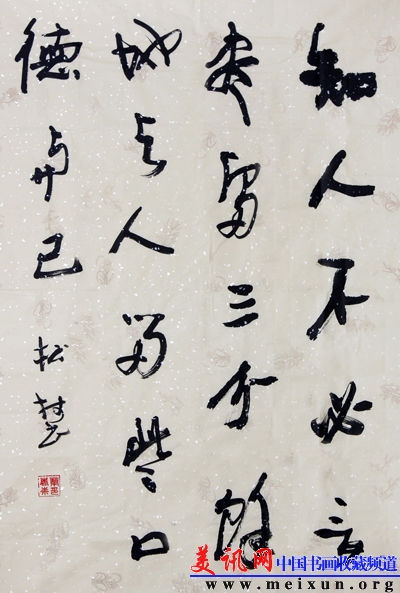 知人不必言
尽留三分馀
地与人留些口
德与己 松
美讯网 中国书画收藏频道
www.meixun.org